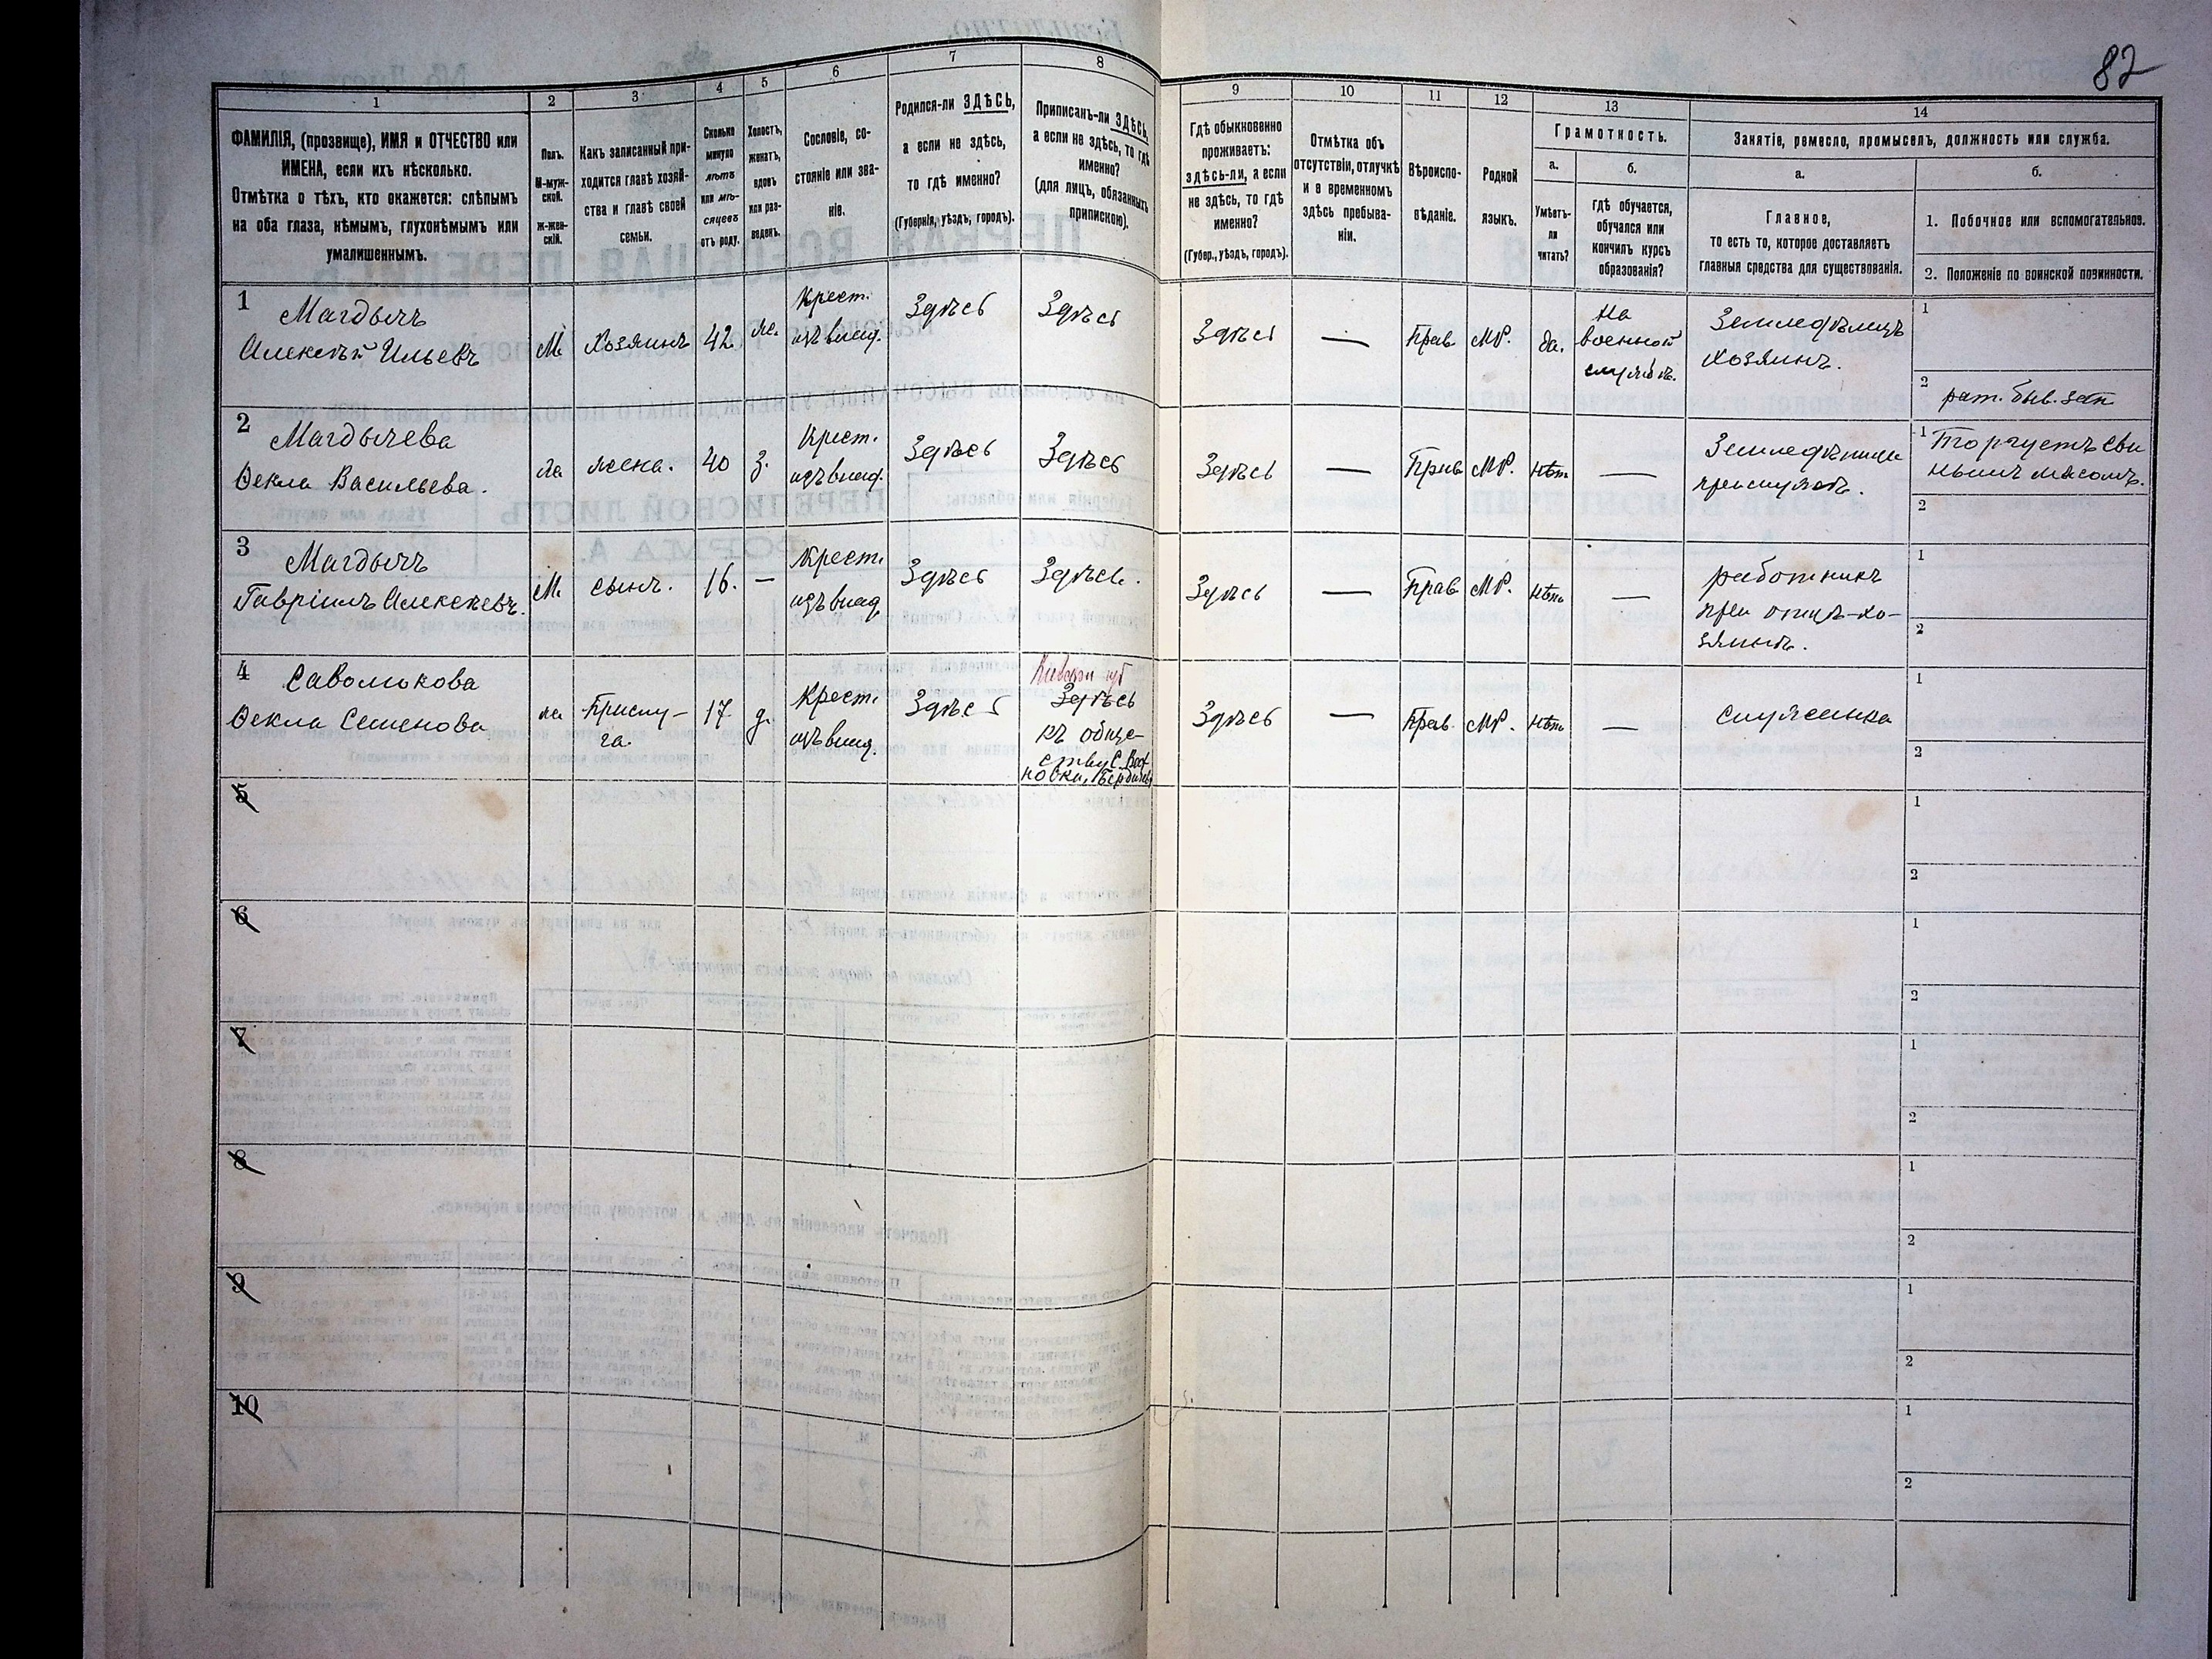 82
1
2
3
4
5
6
7
8
9
10
11
12
13
14
ФАМИЛІЯ, (прозвище), ИМЯ и ОТЧЕСТВО или
ИМЕНА, если ихъ нѣсколько.
Отмѣтка о тѣхъ, кто окажется: слѣпымъ
на оба глаза, нѣмымъ, глухонѣмымъ или
умалишеннымъ.
Полъ.
М-муж-
ской.
Ж-жен-
скій.
Какъ записанный при-
ходится главѣ хозяй-
ства и главѣ своей
семьи.
Сколько
минуло
лѣтъ
или мѣ-
сяцевъ
отъ роду.
Холостъ,
женатъ,
вдовъ
или раз-
веденъ.
Сословіе, со-
стояніе или зва-
ніе.
Родился-ли ЗДѢСЬ,
а если не здѣсь,
то гдѣ именно?
(Губернія, уѣздъ, городъ).
Приписанъ-ли ЗДѢСЬ,
а если не здѣсь, то гдѣ
именно?
(для лицъ, обязанныхъ
припискою).
Гдѣ обыкновенно
проживаетъ:
здѣсь-ли, а если
не здѣсь, то гдѣ
именно?
(Губер., уѣздъ, городъ).
Отмѣтка объ
отсутствіи, отлучкѣ
и о временномъ
здѣсь пребыва-
ніи.
Вѣроиспо-
вѣданіе.
Родной
языкъ.
Грамотность.
а.
Умѣетъ-
ли
читать?
б.
гдѣ обучается,
обучался или
кончилъ курсъ
образованія?
Занятіе, ремесло, промыселъ, должность или служба.
а.
Главное,
то есть то, которое доставляетъ
главныя средства для существованія.
б.
1. Побочное или вспомогательное.
2. Положеніе по воинской повинности.
1
Магдычъ
Алексѣй Ильевъ
М
Хозяинъ
42
же.
Крест.
изъ влад.
Здѣсь
Здѣсь
Здѣсь
—
Прав
МР.
да.
На
военной
службѣ.
Земледѣлецъ
хозяинъ.
1
2
рат. быв. зап
2
Магдычева
Ѳекла Васильева.
же
жена.
40
з.
Крест.
изъ влад.
Здѣсь
Здѣсь
Здѣсь
—
Прав
МР.
нѣтъ
—
1
Торгуетъ сви
нымъ мясомъ.
2
3
Магдычъ
Гавріилъ Алексѣевъ.
М.
сынъ.
16.
—
Крест.
изъ влад.
Здѣсь
Здѣсь.
Здѣсь
—
Прав
МР.
нѣтъ
—
работникъ
при отцѣ-хо-
зяинѣ.
1
2
4
Саволюкова
Ѳекла Семенова
же
Прислу-
га.
17
д.
Крест.
изъ влад.
Здѣсь
Здѣсь
къ обще-
ству С.
Здѣсь
—
Прав.
МР.
нѣтъ
—
служанка
1
2
5
1
2
6
1
2
7
1
2
8
1
2
9
1
2
10
1
2